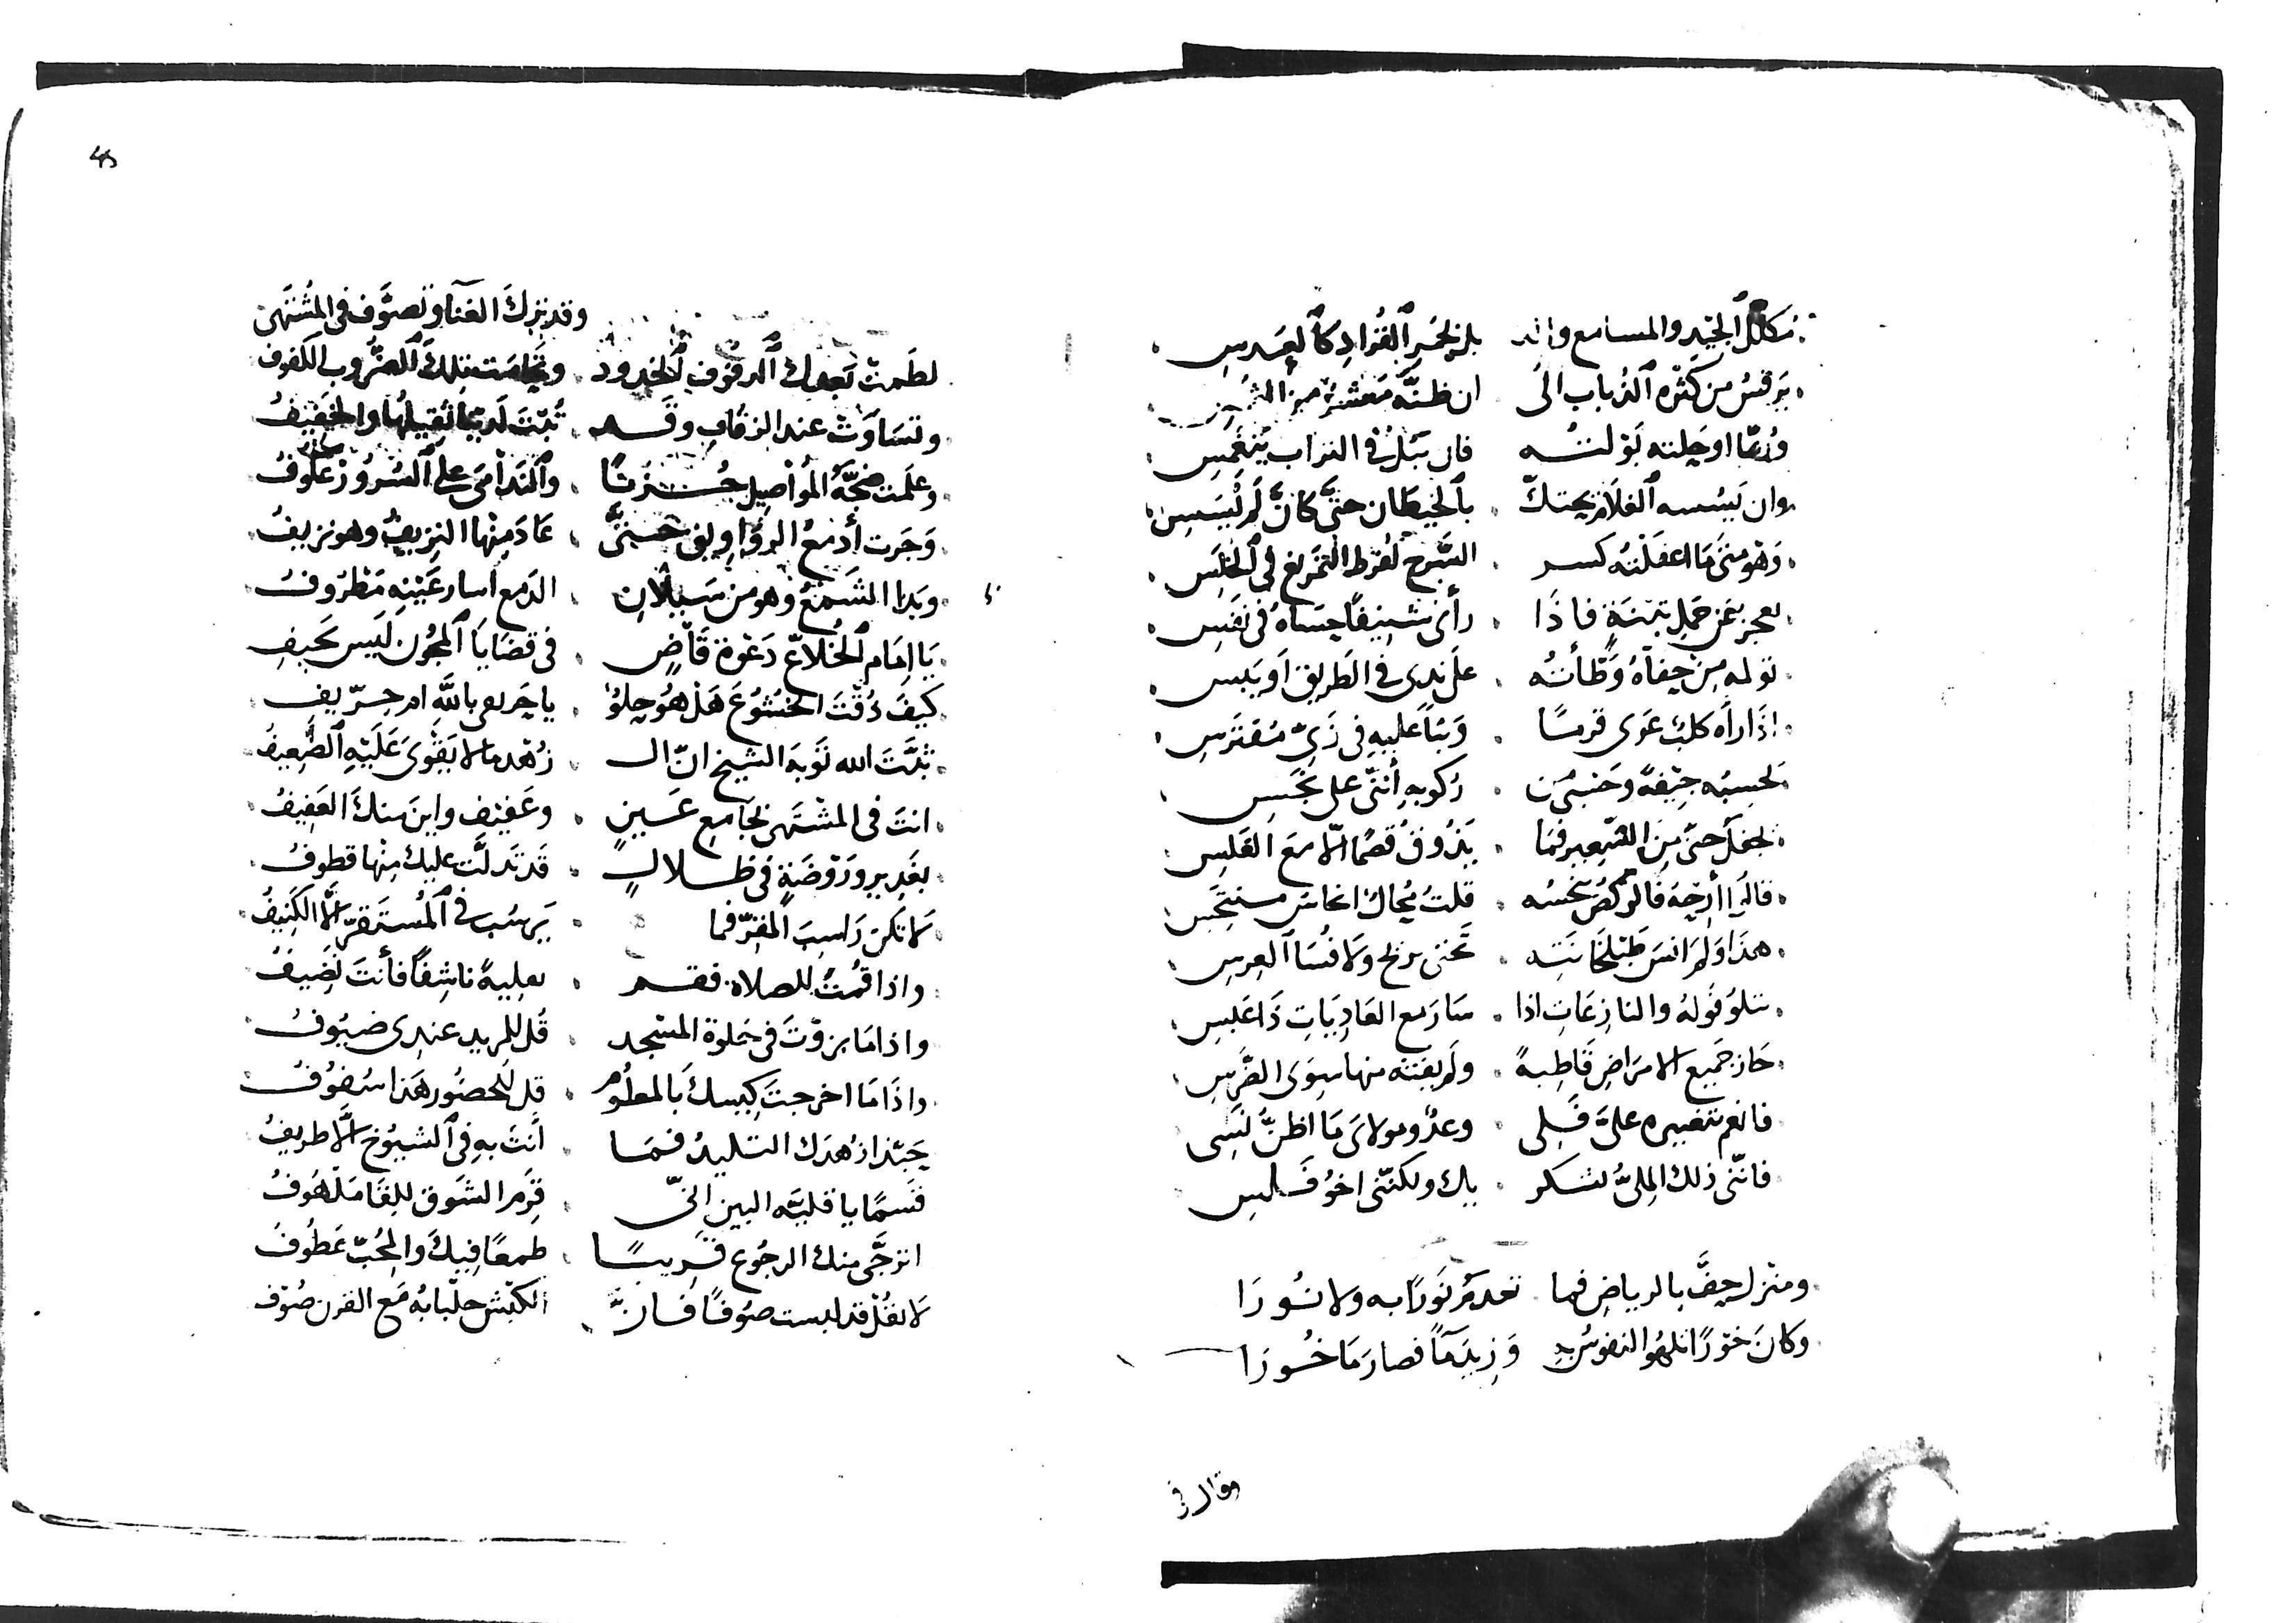 مكلل الجيد والمسامع بل بخر القراد كالعدس
يرقس من كثرة الذباب الى ان ظنه معشر من
وربما اوحلته بولته فان يبل في التراب ينغمس
وان يسسه الغلام يحتك بالحيطان حتى كان لم يسس
وهو متى ما اغفلته كسر السرج لفرط التمريغ في الخلس
يعجز عن حمل تبنة فاذا رأى شنيفا حساه في نفس
تولمه من حفاه وطأته على ندى في الطريق او يبس
اذا راه كلب عوى قرما وبنا عليه في زي مفترس
لحسبه جيفة وحسبى من ركوبه أنني على نجس
لجفل حتى من الشعير فما يذوق قضما الا مع الغلس
قالوا أرحه فالركض ينخسه قلت محاك انخاس منتحس
هذا ولم انس طبلخانته تحتى بزنج ولا فسا العرس
تتلو قوله والنازعات اذا سار مع العاديات ذا عبس
حاز جميع الامراض قاطبة ولم يفته منها سوى الضرس
فانعم بتغييره على قبلي وعد ومولاى ما اظن نسى
فانني ذلك الملي لشكر بك ولكنني اخو فلس
ومنزل حف بالرياض فما تعدم نورا به ولا نورا
وكان خورا تلهو النفوس به وزيد ما فصار ماخورا
وقال في
وقد ترك الغنا وتصوف في المشتهى
لطمت بعدك الدفوف الخدود وتحامت تلك الضروب الكفوف
وتساوت عند الزفاف وقد تبت لدينا ثقيلها والخفيف
وعلت ضجة المواصيل حزنا والندامى على السرور عكوف
وجرت أدمع الرواويق حتى عاد منها النزيف وهو نزيف
وبدا الشمع وهو من سيلان الدمع اسار عينه مطروف
يا امام الخلاع دعوة قاض في قضايا المجون ليس يحيف
كيف ذقت الخشوع هل هو حلو يا حريفى بالله ام حريف
ثبت الله توبة الشيخ ان الـ زهد ما لا يقوى عليه الضعيف
انت في المشتهى بجامع عين وعفيف واين منك العفيف
بغدير وروضة في ظلال قد تدلت عليك منها قطوف
لا تكن راسب المفر فما يرسب في المستقر الا الكنيف
واذا قمت للصلاة فقم بعليه ناشفا فأنت نضيف
واذا ما برزت في خلوة المسجد قل للمريد عندى ضيوف
واذا ما اخرجت كيسك بالمعلوم قل للحضور هذا سفوف
حبذا زهدك التليد فما أنت به في الشيوخ الا طريف
قسما يا قليه البين اني قرم الشوق للقا ملهوف
اترجى منك الرجوع قريبا طمعا فيك والمحب عطوف
لا تقل قد لبست صوفا فان الكبش جلبابه مع القرن صوف